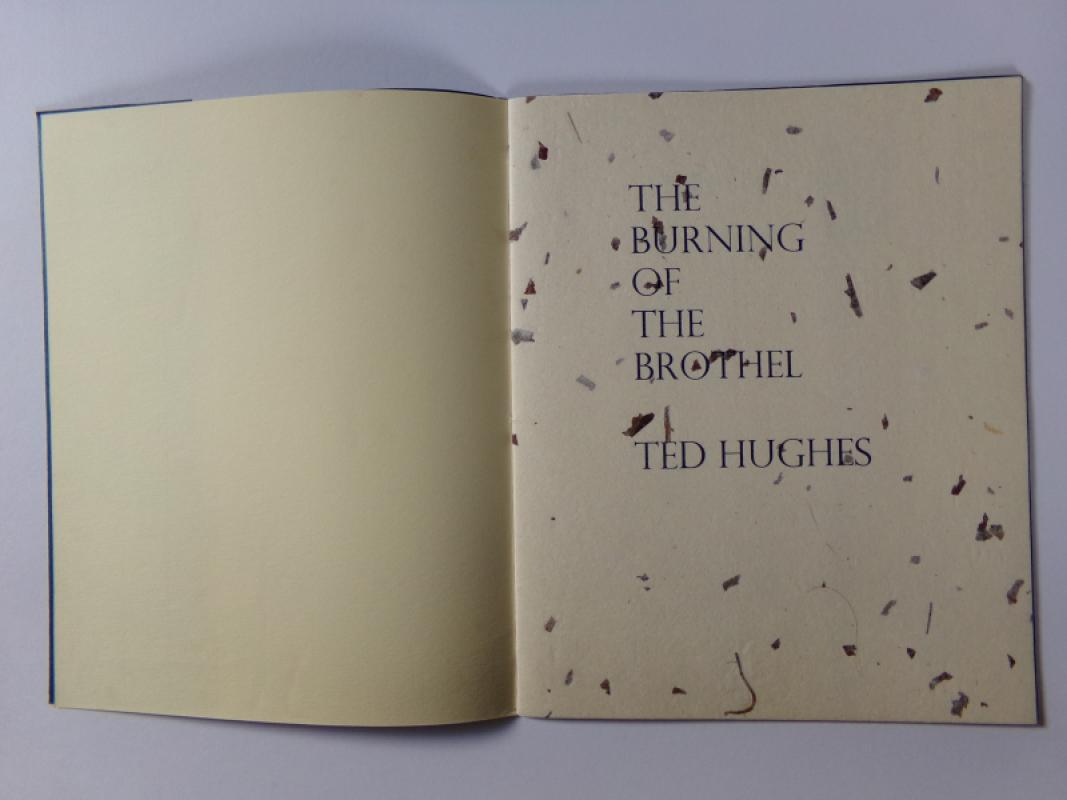 THE
BURNING
OF
THE
BROTHEL
TED HUGHES